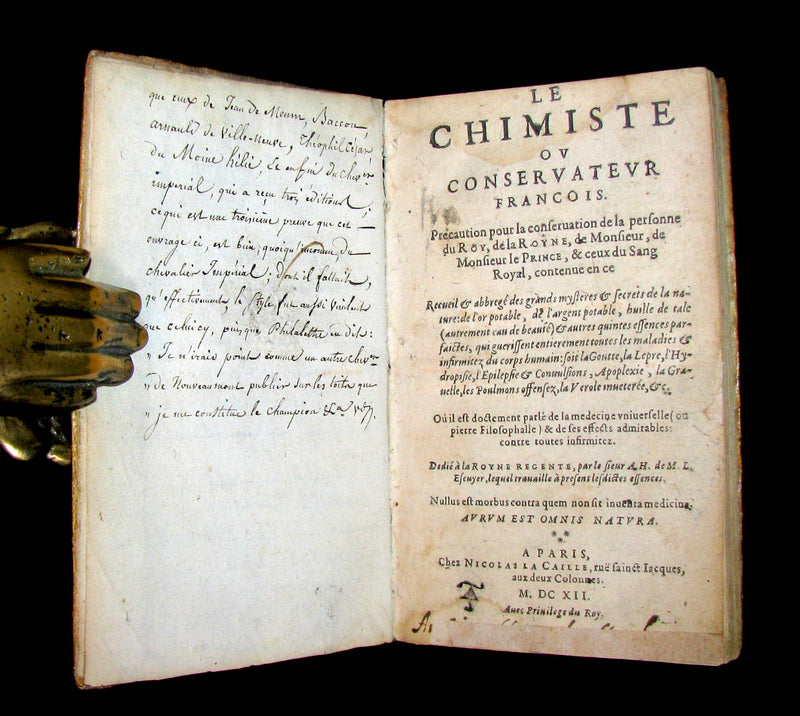 que ceux de Jean de Meum, Baccon,
arnauld de Ville-neuve, Théophil César
du Moine hélie, & enfin du chev.er
imperial, qui a reçu trois éditions;
ce qui est une troisieme preuve que cet
ouvrage ci, est bien, quoiqu'inconnu, du
chevalier Imperial; dont il fallait,
qu'effectivement, le style fut aussi virulent
que celui cy, puisque Philalethe en dit:
" Je n'irais point comme un autre chev.er
" de Nouveau mont publier sur les toits que
" je me constitue le champion &.a
LE
CHIMISTE
OV
CONSERVATEVR
FRANCOIS.
Précaution pour la conseruation de la personne
du ROY, de la ROYNE, de Monsieur, de
Monsieur le PRINCE, & ceux du Sang
Royal, contenue en ce
Recueil & abbregé des grands mysteres & secrets de la na-
ture: de l'or potable, de l'argent potable, huille de talc
(autrement eau de beauté) & autres quintes essences par-
faictes, qui guerissent entierement toutes les maladies &
infirmitez du corps humain: soit la Goutte, la Lepre, l'Hy-
dropisie, l'Epilepsie & Conuulsions, Apoplexie, la Gra-
uelle, les Poulmons offensez, la Verole inueterée, &c.
Où il est doctement parlé de la medecine vniuerselle (ou
pierre Filosophalle) & de ses effects admirables:
contre toutes infirmitez.
Dedié à la ROYNE REGENTE, par le sieur A. H. de M. L.
Escuyer, lequel trauaille à present lesdictes essences.
Nullus est morbus contra quem non sit inuenta medicina.
AVRVM EST OMNIS NATVRA.
A PARIS,
Chez NICOLAS LA CAILLE, ruë sainct Iacques,
aux deux Colonnes.
M. DC XII.
Auec Priuilege du Roy.